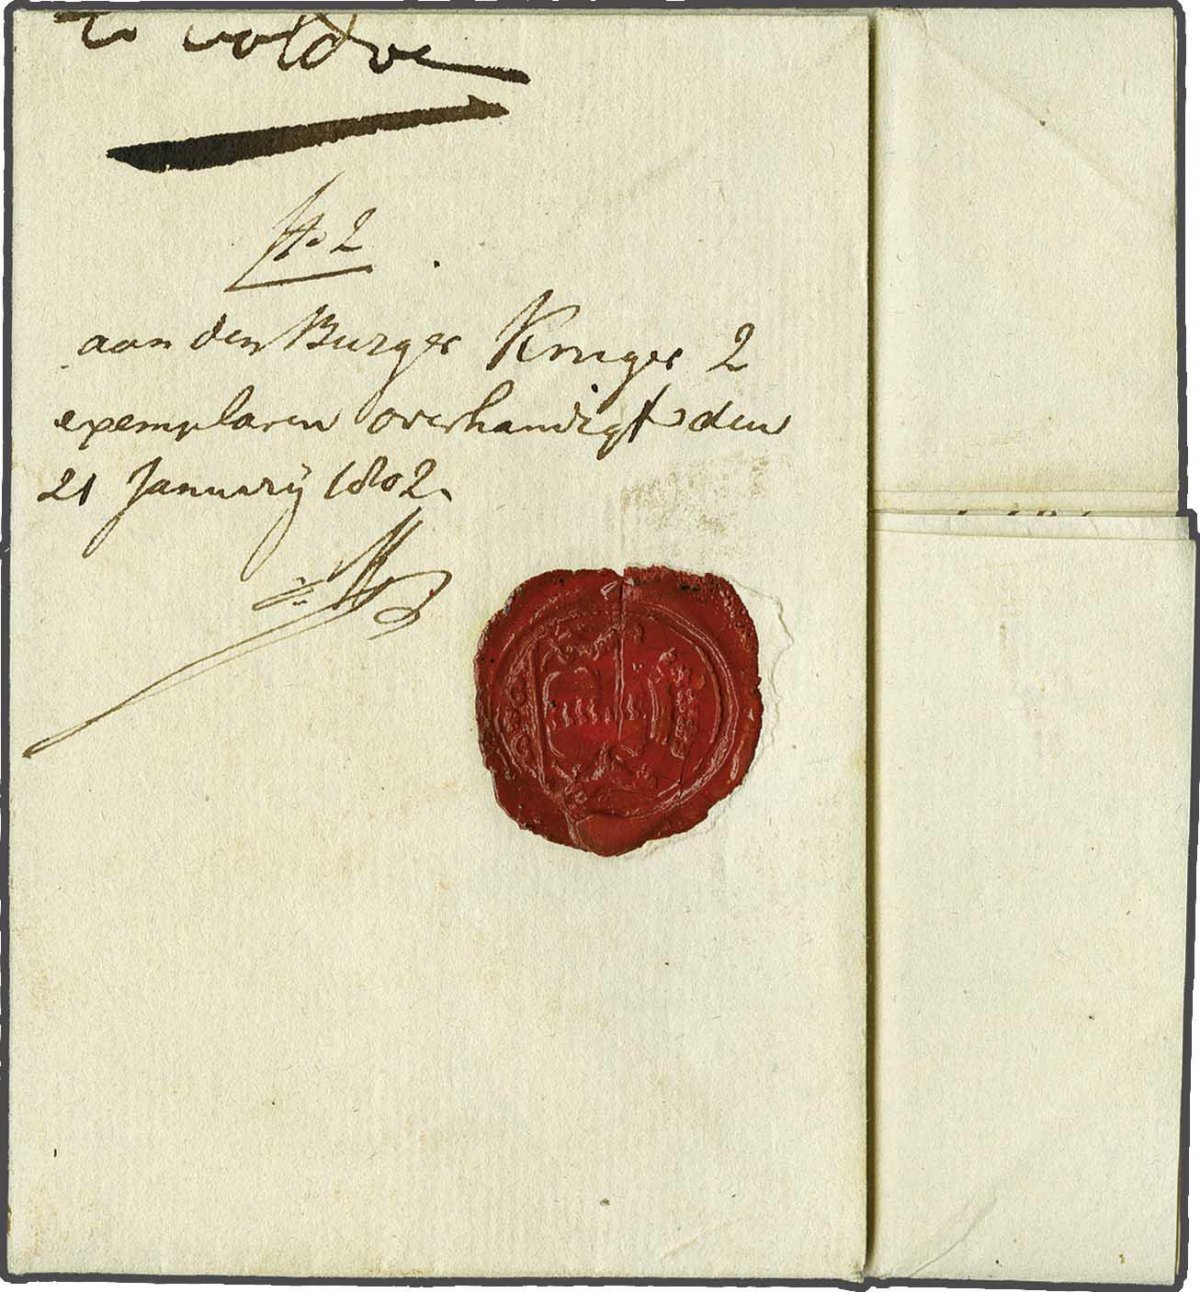 No 2
aan den Burger Kruger 2
exemplaren overhandigt den
21 January 1802.